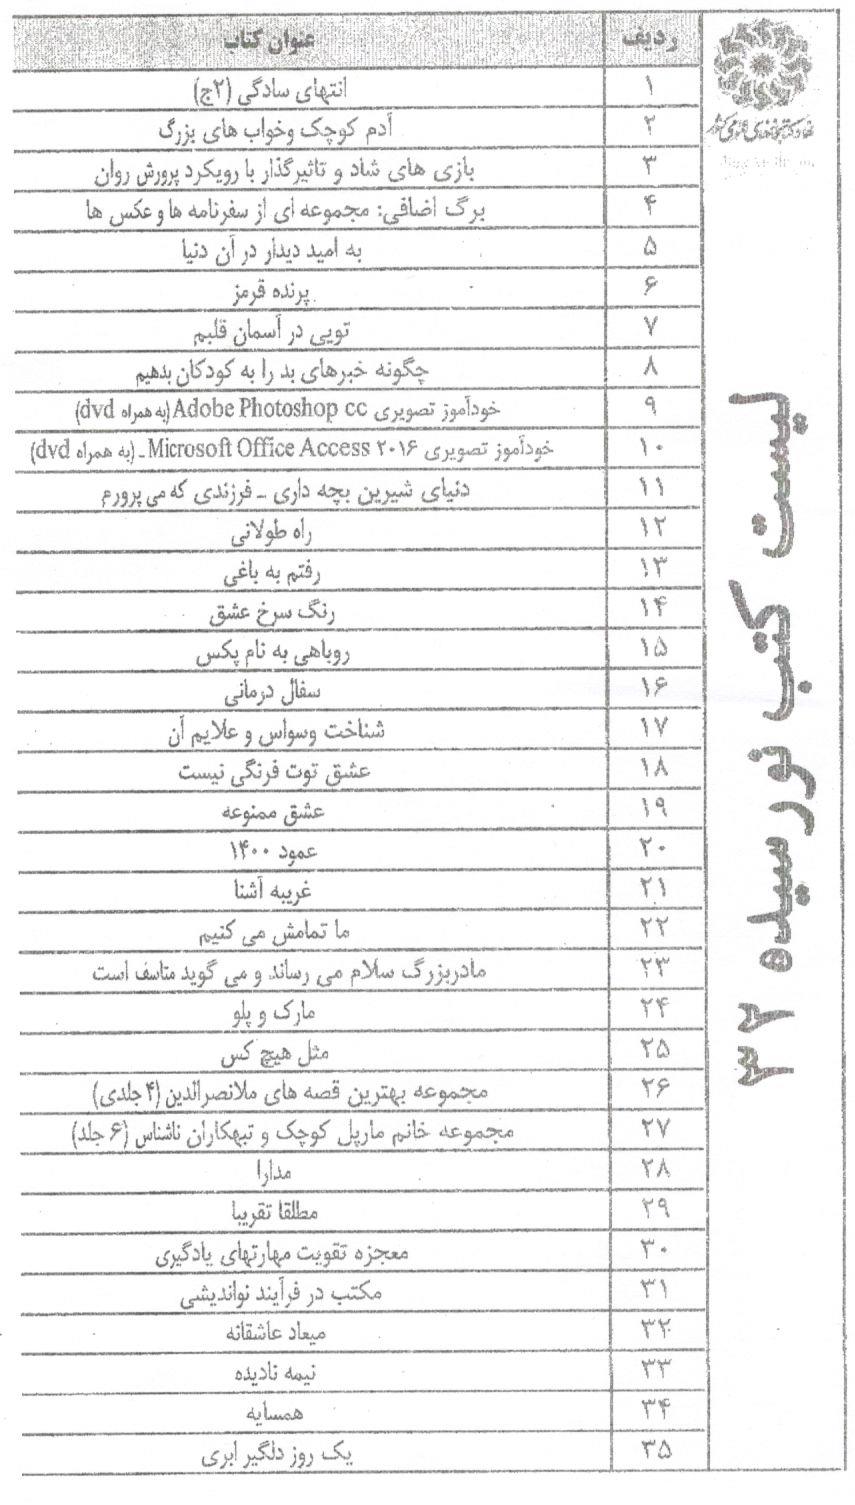 نهاد کتابخانه‌های عمومی کشور
لیست کتب نورسیده ۳۲
ردیف عنوان کتاب
۱ انتهای سادگی (۲ج)
۲ آدم کوچک وخواب های بزرگ
۳ بازی های شاد و تاثیرگذار با رویکرد پرورش روان
۴ برگ اضافی: مجموعه ای از سفرنامه ها و عکس ها
۵ به امید دیدار در آن دنیا
۶ پرنده قرمز
۷ تویی در آسمان قلبم
۸ چگونه خبرهای بد را به کودکان بدهیم
۹ خودآموز تصویری Adobe Photoshop cc (به همراه dvd)
۱۰ خودآموز تصویری Microsoft Office Access ۲۰۱۶ ـ (به همراه dvd)
۱۱ دنیای شیرین بچه داری ـ فرزندی که می پرورم
۱۲ راه طولانی
۱۳ رفتم به باغی
۱۴ رنگ سرخ عشق
۱۵ روباهی به نام پکس
۱۶ سفال درمانی
۱۷ شناخت وسواس و علایم آن
۱۸ عشق توت فرنگی نیست
۱۹ عشق ممنوعه
۲۰ عمود ۱۴۰۰
۲۱ غریبه آشنا
۲۲ ما تمامش می کنیم
۲۳ مادربزرگ سلام می رساند و می گوید متاسف است
۲۴ مارک و پلو
۲۵ مثل هیچ کس
۲۶ مجموعه بهترین قصه های ملانصرالدین (۴ جلدی)
۲۷ مجموعه خانم مارپل کوچک و تبهکاران ناشناس (۶ جلد)
۲۸ مدارا
۲۹ مطلقا تقریبا
۳۰ معجزه تقویت مهارتهای یادگیری
۳۱ مکتب در فرآیند نواندیشی
۳۲ میعاد عاشقانه
۳۳ نیمه نادیده
۳۴ همسایه
۳۵ یک روز دلگیر ابری